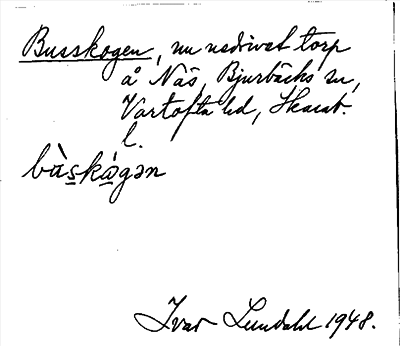 Busskogen, nu nedrivet torp
å Näs, Bjurbäcks sn,
Vartofta hd, Skarab.
l.
bàskágən
Ivar Lundahl 1948.